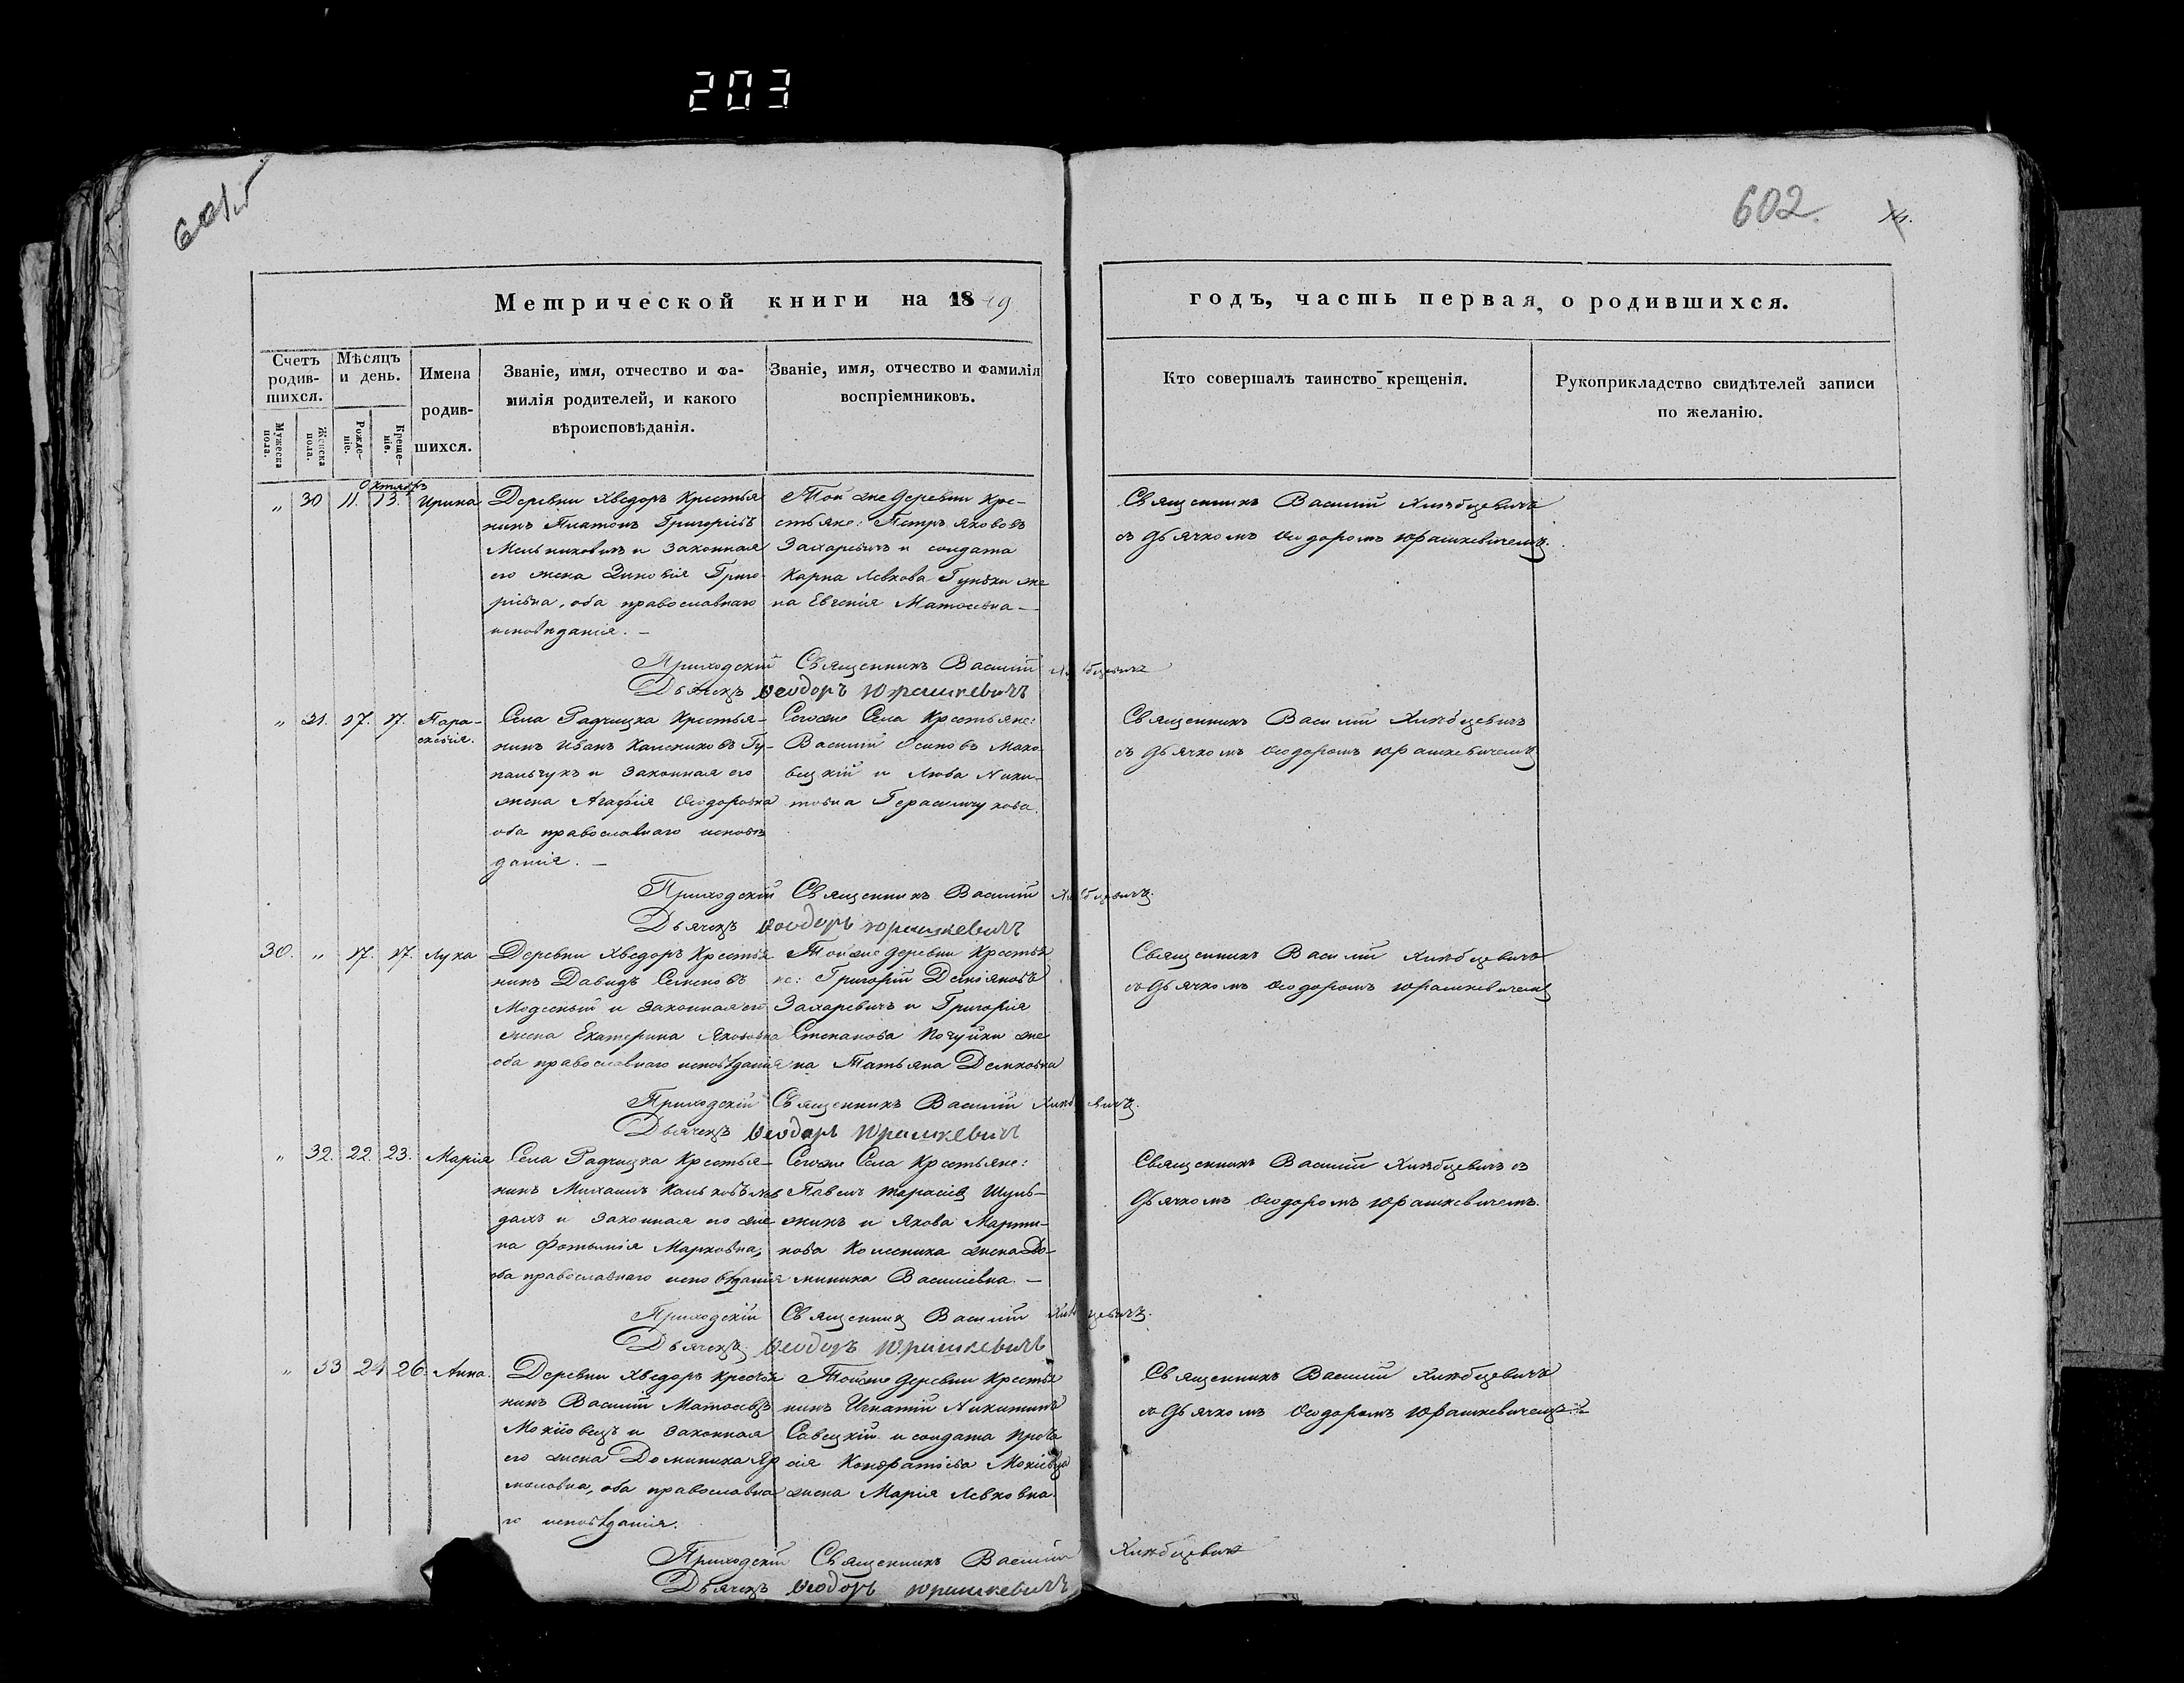 203
602.
Метрической книги на 1849
годъ, часть первая, о родившихся.
Счетъ родив-шихся.
Мѣсяцъ и день.
Имена родив-шихся.
Званіе, имя, отчество и фа-
милія родителей, и какого
вѣроисповѣданія.
Званіе, имя, отчество и фамилія
воспріемниковъ.
Кто совершалъ таинство крещенія.
Рукоприкладство свидѣтелей записи
по желанію.
Мужеска пола.
Женска пола.
Рожде-ніе.
Креще-ніе.
Октябрь
" 30 11. 13. Ирина
Деревни Хведоръ Крестья
нинъ Платонъ Григоріевъ
Мельниковичъ и законная
его жена Зиновія Григо-
ріевна, оба православнаго
исповѣданія. –
Той же деревни Кре-
стьяне: Петръ Яковъ
Захаревичъ и солдата
Карпа Левкова Гуньки же
на Евгенія Матѳеевна –
Священникъ Василій Хлѣбцевичъ
съ дьячкомъ Ѳеодоромъ Юрашкевичемъ.
Приходскій Священникъ Василій Хлѣбцевичъ
Дьячекъ Ѳеодоръ Юрашкевичъ
" 31. 17. 17. Пара-
скевія.
Села Радчицка Крестья-
нинъ Иванъ
пальчукъ и законная его
жена Агафія Ѳеодоровна
оба православнаго исповѣ
данія. –
Тогоже Села Крестьяне:
Василій Осиповъ Мако-
вецкій и Люба Ники-
товна Герасимчукова.
Священникъ Василій Хлѣбцевичъ
съ дьячкомъ Ѳеодоромъ Юрашкевичемъ
Приходскій Священникъ Василій Хлѣбцевичъ.
Дьячекъ Ѳеодоръ Юрашкевичъ
30. " 17. 17. Лука
Деревни Хведоръ Крестья
нинъ Давидъ Семеновъ
Модесный и законная его
жена Екатерина Якововна
оба православнаго исповѣданія
Тойже деревни Крестья
не: Григорій Демьяновъ
Захаревичъ и Григорія
Степанова Почуйки же
на Татьяна Демковна
Священникъ Василій Хлѣбцевичъ
съ дьячкомъ Ѳеодоромъ Юрашкевичемъ
Приходскій Священникъ Василій Хлѣбцевичъ.
Дьячекъ Ѳеодоръ Юрашкевичъ
" 32. 22. 23. Марія
Села Радчицка Крестья-
нинъ Михаилъ
и законная его же
на Фотинія Марковна,
оба православнаго исповѣданія
Тогоже Села Крестьяне:
Павелъ Тарасіевъ Шуль-
жикъ и Якова Марти-
нова Колесника жена До-
миника Василіевна. –
Священникъ Василій Хлѣбцевичъ съ
дьячкомъ Ѳеодоромъ Юрашкевичемъ.
Приходскій Священникъ Василій Хлѣбцевичъ.
Дьячекъ Ѳеодоръ Юрашкевичъ
" 33 24 26. Анна.
Деревни Хведоръ Крестья
нинъ Василій Матѳеевъ
Мокіовецъ и законная
его жена Доминика Яр
моловна, оба православна
го исповѣданія.
Тойже деревни Крестья
нинъ Игнатій Никитинъ
Савецкій и солдата Проко
Кондратіева Мокіевца
жена Марія Левковна.
Священникъ Василій Хлѣбцевичъ
съ дьячкомъ Ѳеодоромъ Юрашкевичемъ
Приходскій Священникъ Василій Хлѣбцевичъ
Дьячекъ Ѳеодоръ Юрашкевичъ